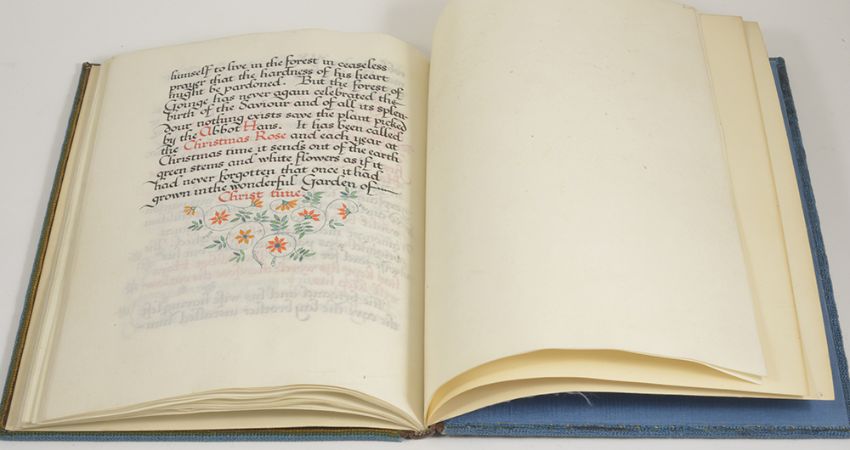 himself to live in the forest in ceaseless
prayer that the hardness of his heart
might be pardoned. But the forest of
Goinge has never again celebrated the
birth of the Saviour and of all its splen-
dour nothing exists save the plant picked
by the Abbot Hans. It has been called
the Christmas Rose and each year at
Christmas time it sends out of the earth
green stems and white flowers as if it
had never forgotten that once it had
grown in the wonderful Garden of
Christ time.